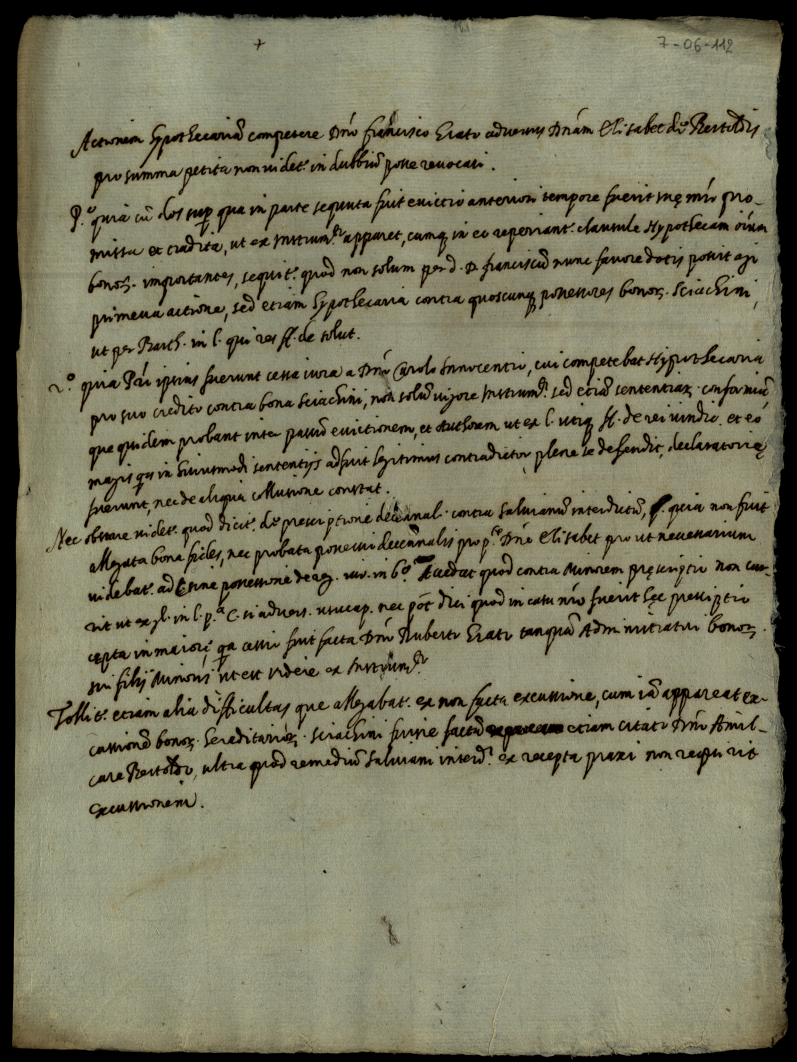 7-06-112
Actionem Hypothecariã competere Dnõ Francisco Erato adversus Dnãm Elisabet de Bertoldis
pro summa petita non videt.r in dubbiũ posse revocari.
P.o quia cũ dos sup qua in parte sequuta fuit evictio anteriori tempore fuerit pro-
missa et tradita, ut ex Instrum.to apparet, cumq in eo reperiant.r clausule Hypothecam oĩum
bonor. importantes, sequit.r quod non solum per d. D. Franciscũ nunc favore dotis possit agi
primeva actione, sed etiam Hypothecaria contra quoscunq possessores bonor. Sciachini,
ut per Barth. in l. qui res ff. de solut.
2.o quia ipsius fuerunt cessa iura a Dnõ Carolo Innocentio, cui competebat Hypothecaria
pro suo credito contra bona Sciachini, non solũ vigore Instrum.ti sed etiã sententiar. conformiũ
que quidem probant inter passũ evictionem, et Authorem ut ex l. utiq ff. de rei vindic. et eò
magis in huiusmodi sententijs adfuit legitimus contradictor, plene se defendit, declaratorię
fuerunt, nec de aliqua collusione constat.
Nec obstare videt.r quod dicit.r de prescriptione decẽnal. contra Salvianũ interdictũ, quia non fuit
allegata bona fides, nec probata possessio decẽnalis pro p.te Dnẽ Elisabet pro ut necessarium
videbat.r ad sine possessione de reg. iur. in 6.o Accedat quod contra Minorem pręscriptio non cur-
rit ut ex gl. in l. p.a C. si advers. usucap. nec põt dici quod in casu nrõ fuerit hęc prescriptio
cępta in maiorẽ, qa cessio fuit facta Dnõ Ruberto Erato tanquã Administratori bonor.
sui filij Minoris ut est videre ex Instrum.to
Tollit.r etiam alia difficultas que allegabat.r ex non facta excussione, cum iã appareat ex-
cussionẽ bonor. hereditarior. Sciachini fuisse factã etiam citato Dnõ Amil-
care Bertoldo, ultra quod remediũ Salviani interd.i ex recepta praxi non requirit
excussionem.